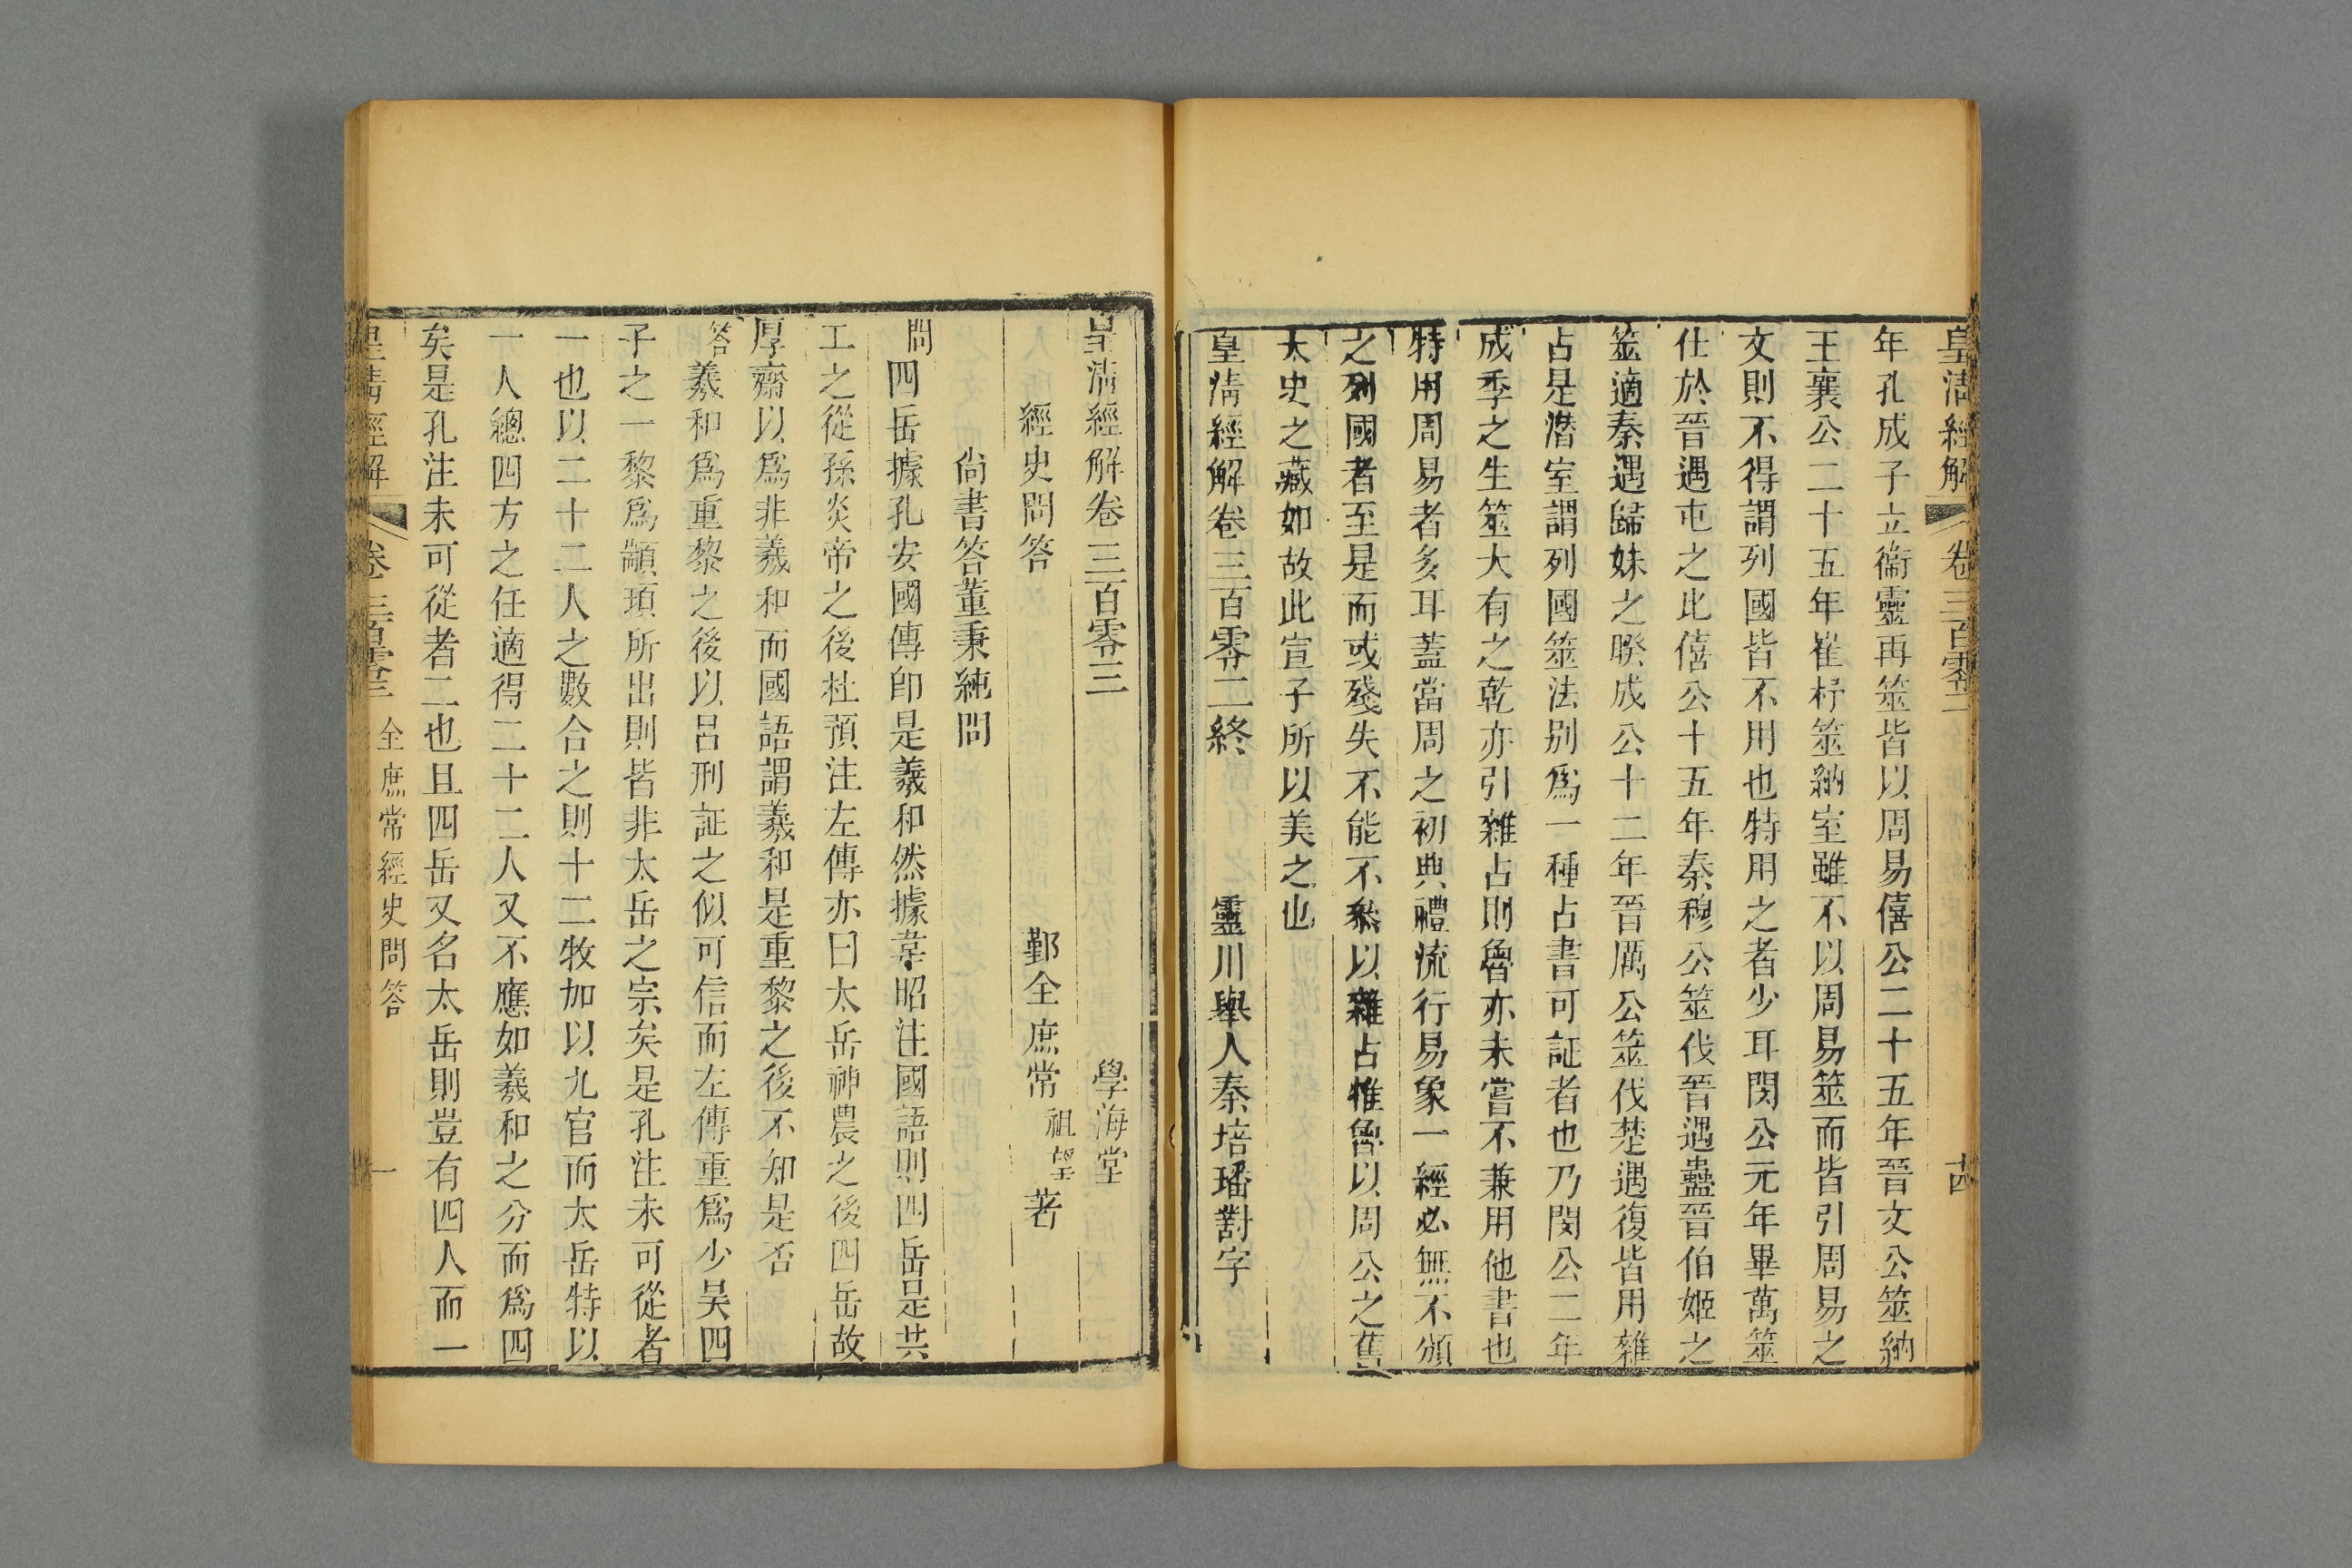 皇清經解 卷三百零二 十四
年孔成子立衞靈再筮皆以周易僖公二十五年晉文公筮納
王襄公二十五年崔杼筮納室雖不以周易筮而皆引周易之
文則不得謂列國皆不用也特用之者少耳閔公元年畢萬筮
仕於晉遇屯之比僖公十五年秦穆公筮伐晉遇蠱晉伯姬之
筮適秦遇歸妹之睽成公十二年晉厲公筮伐楚遇復皆用雜
占是潛室謂列國筮法別爲一種占書可証者也乃閔公二年
成季之生筮大有之乾亦引雜占則魯亦未嘗不兼用他書也
特用周易者多耳蓋當周之初典禮流行易象一經必無不頒
之列國者至是而或殘失不能不叅以雜占惟魯以周公之舊
太史之藏如故此宣子所以美之也
皇清經解卷三百零二終 靈川舉人秦培璠對字
皇清經解卷三百零三 學海堂
經史問答 鄞全庶常祖望著
尚書答董秉純問
問四岳據孔安國傳卽是羲和然據韋昭注國語則四岳是共
工之從孫炎帝之後杜預注左傳亦曰太岳神農之後四岳故
厚齋以爲非羲和而國語謂羲和是重黎之後不知是否
答羲和爲重黎之後以呂刑証之似可信而左傳重爲少昊四
子之一黎爲顓頊所出則皆非太岳之宗矣是孔注未可從者
一也以二十二人之數合之則十二牧加以九官而太岳特以
一人總四方之任適得二十二人又不應如羲和之分而爲四
矣是孔注未可從者二也且四岳又名太岳則豈有四人而一
皇清經解 卷三百零三 全庶常經史問答 一